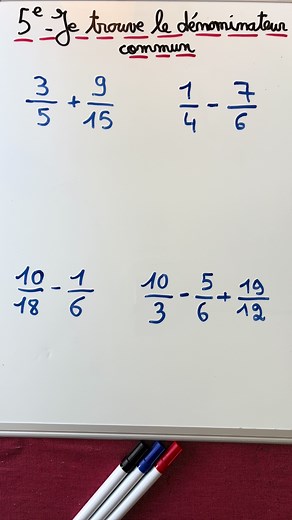 5e - Je trouve le dénominateur
commun
3/5 + 9/15
1/4 - 7/6
10/18 - 1/6
10/3 - 5/6 + 19/12